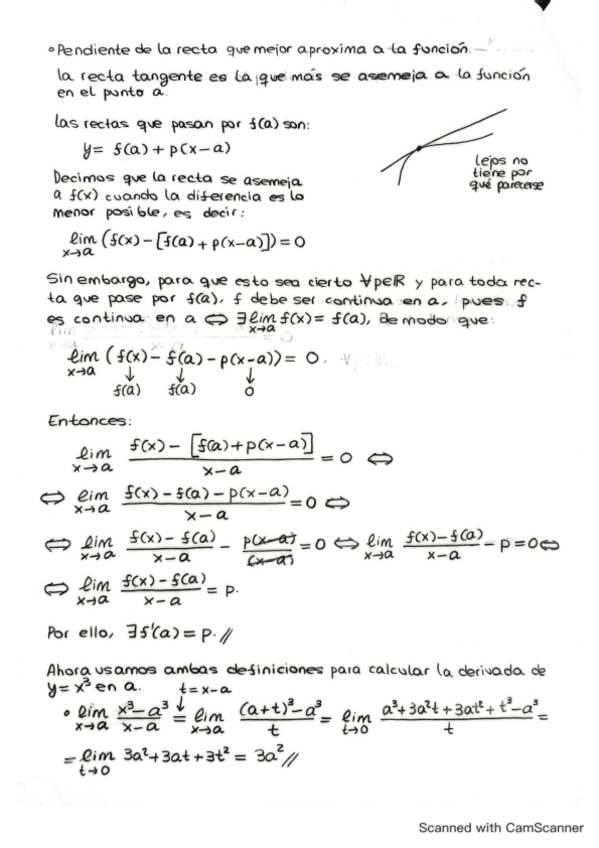 ° Pendiente de la recta que mejor aproxima a la función.
La recta tangente es la que más se asemeja a la función
en el punto a.
Las rectas que pasan por f(a) son:
y = f(a) + p(x-a)
lejos no
tiene por
qué parecerse
Decimos que la recta se asemeja
a f(x) cuando la diferencia es lo
menor posible, es decir:
lim (f(x) - [f(a) + p(x-a)]) = 0
x→a
Sin embargo, para que esto sea cierto ∀p∈ℝ y para toda rec-
ta que pase por f(a), f debe ser continua en a, pues f
es continua en a ⇔ ∃ lim f(x) = f(a), De modo que:
x→a
lim (f(x) - f(a) - p(x-a)) = 0.
x→a ↓ ↓ ↓
f(a) f(a) 0
Entonces:
lim f(x) - [f(a) + p(x-a)] / x-a = 0 ⇔
x→a
⇔ lim f(x) - f(a) - p(x-a) / x-a = 0 ⇔
x→a
⇔ lim f(x) - f(a) / x-a - p(x-a) / (x-a) = 0 ⇔ lim f(x) - f(a) / x-a - p = 0 ⇔
x→a x→a
⇔ lim f(x) - f(a) / x-a = p.
x→a
Por ello, ∃f'(a) = p. //
Ahora usamos ambas definiciones para calcular la derivada de
y = x³ en a. t = x-a
° lim x³-a³ / x-a = lim (a+t)³-a³ / t = lim a³+3a²t+3at²+t³-a³ / t =
x→a x→a t→0
= lim 3a²+3at+3t² = 3a² //
t→0
Scanned with CamScanner